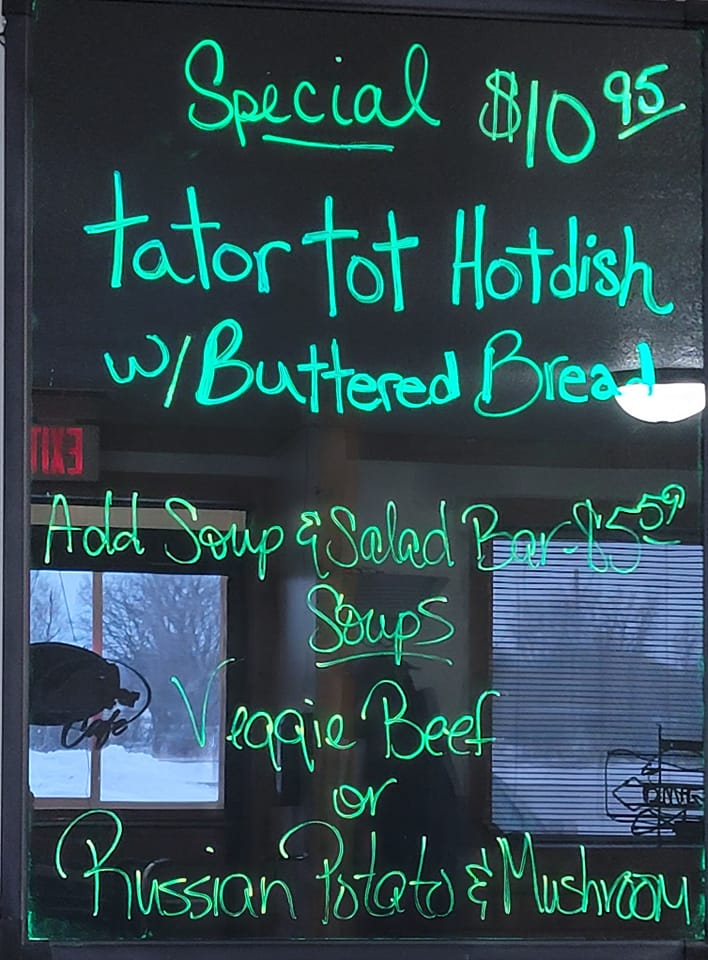 Special $10.95
Tator Tot Hotdish
w/Buttered Bread
EXIT
Add Soup & Salad Bar-$5.59
Soups
Veggie Beef
Cafe
or
Russian Potato & Mushroom